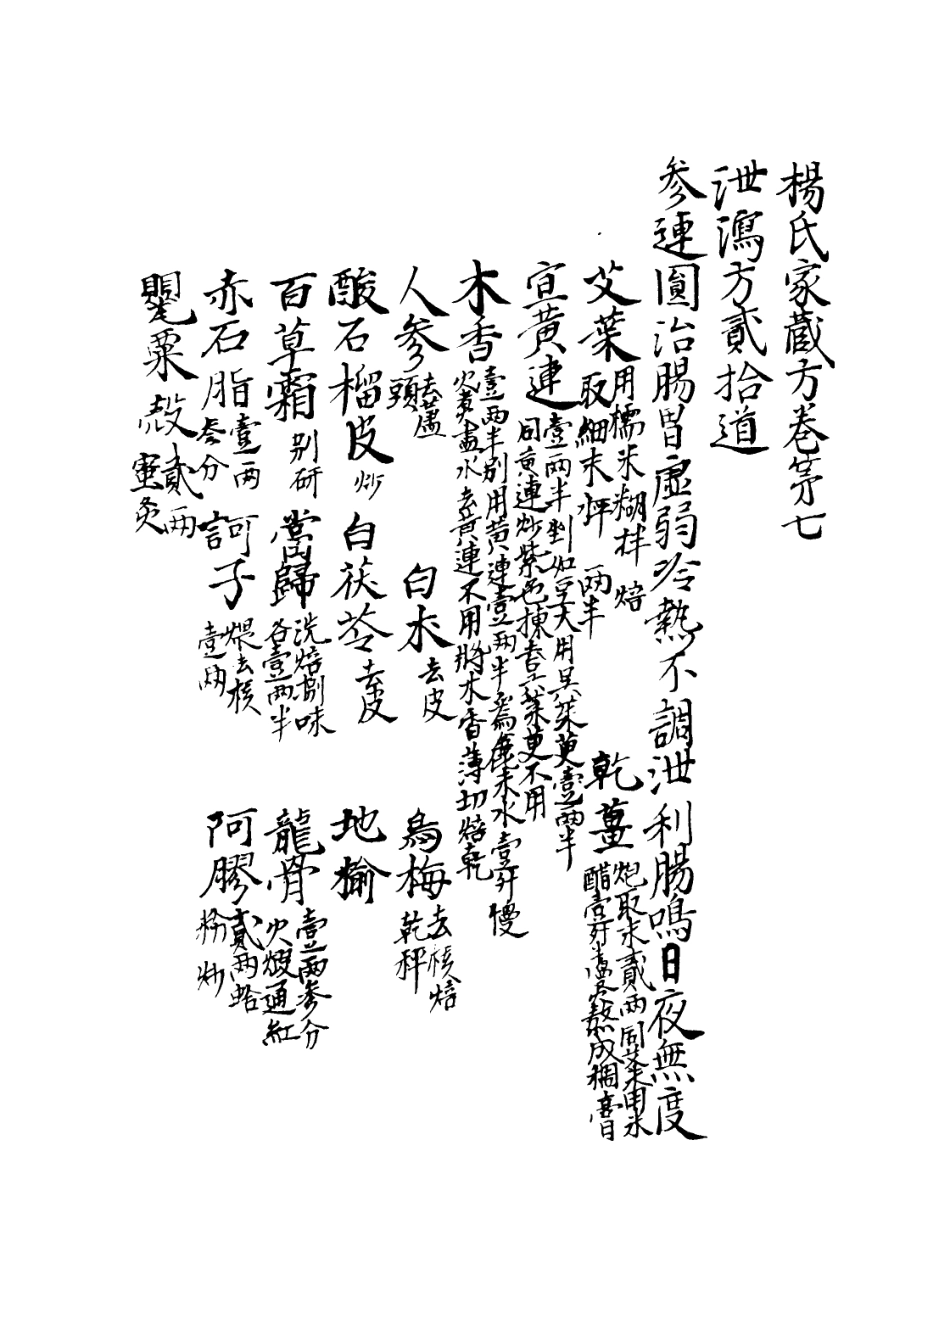 楊氏家藏方卷苐七
泄瀉方貳拾道
参連圎治腸胃虛弱冷熱不調泄利腸鳴日夜無度
艾葉用糯米糊拌焙取細末秤 兩半 乾薑炮取末貳兩同艾末用米醋壹升煑 熬成稠膏
宣黃連壹兩半剉如豆大用吳茱萸壹兩半同黃連炒紫色揀去茱萸不用
木香壹兩半别用黃連壹兩半爲麄末水壹升慢火煑盡水去黃連不用將木香薄切焙乾
人参去蘆頭 白朮去皮 烏梅去核焙乾秤
酸石榴皮炒 白茯苓去皮 地榆
百草霜别研 當歸洗焙捌味各壹兩半 龍骨壹兩参分火煅通紅
赤石脂壹兩参分 訶子煨去核壹兩 阿膠貳兩蛤粉炒
甖粟殻貳兩蜜炙